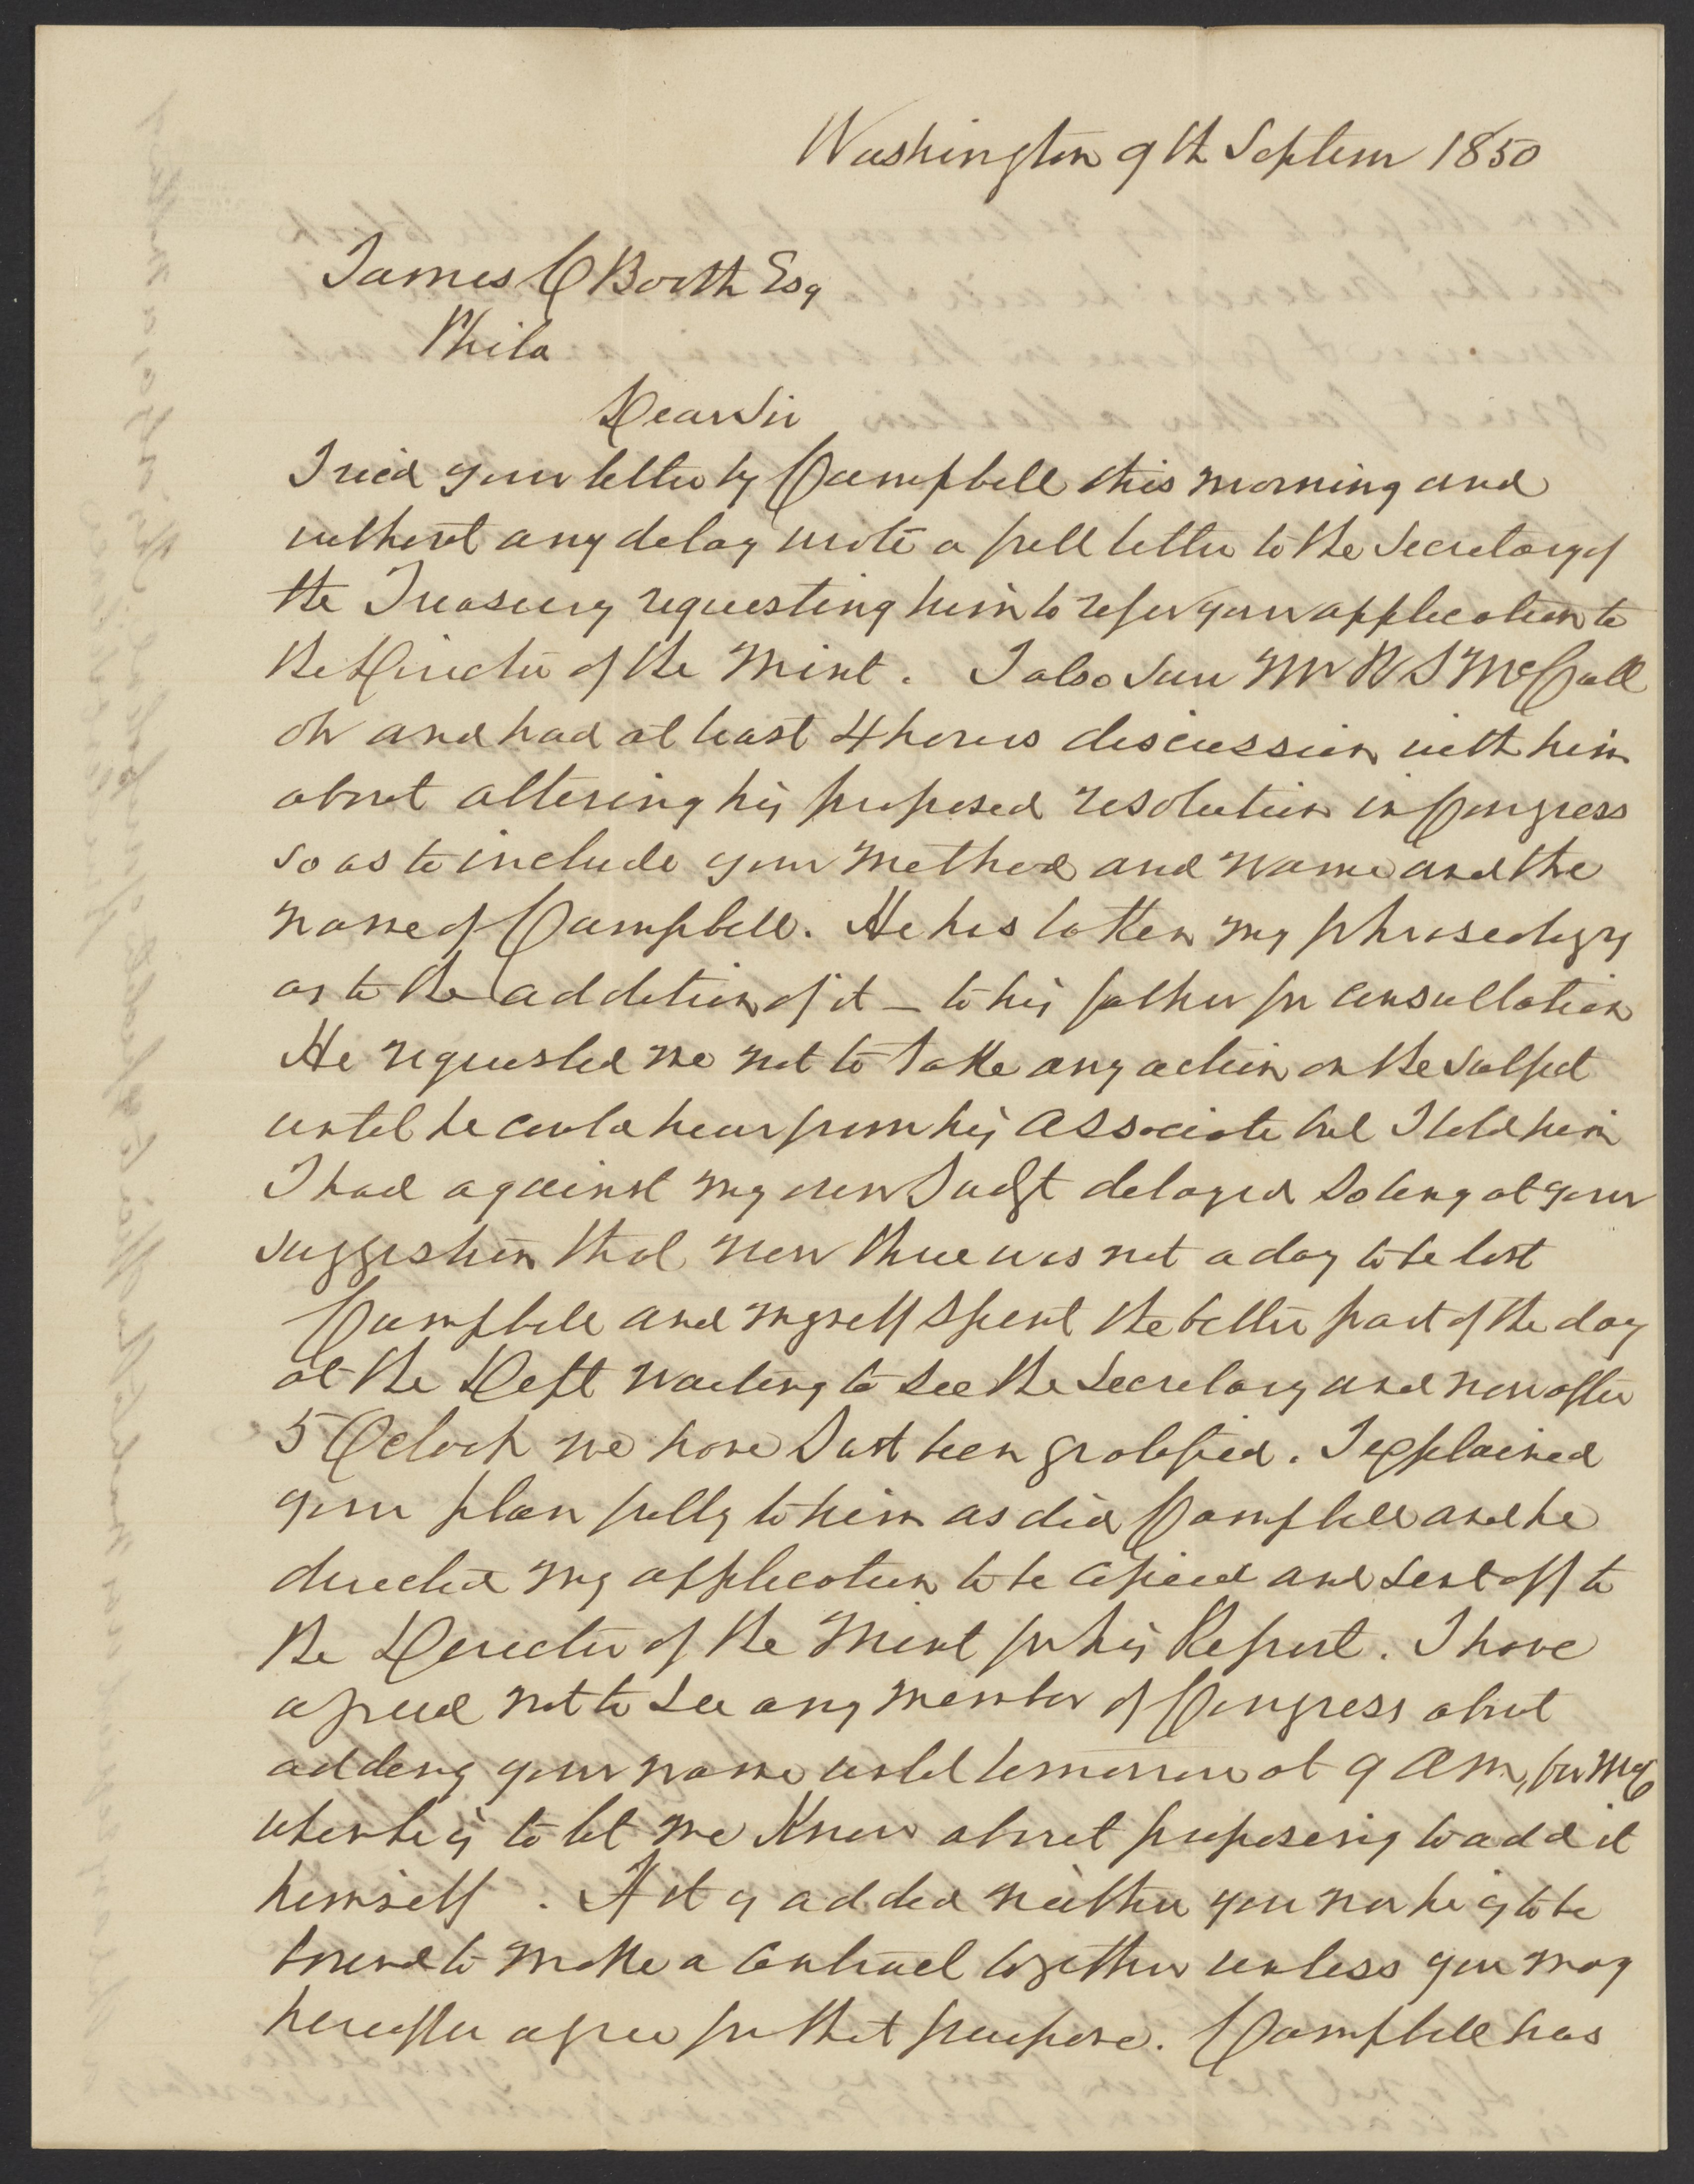 Washington 9th Septem 1850
James C Booth Esq
Phila
Dear Sir
I recd your letter by Campbell this morning and
without any delay wrote a full letter to the Secretary of
the Treasury requesting him to refer your application to
the Director of the Mint. I also saw Mr R S McCull
oh and had at least 4 hours discussion with him
about altering his proposed resolution in Congress
so as to include your method and name and the
name of Campbell. He has taken my phraseology
as to the addition of it – to his father for consultation
He requested me not to take any action on the subject
until he could hear from his associate but I told him
I had against my own Judgt delayed so long at your
suggestion that now there was not a day to be lost
Campbell and myself spent the better part of the day
at the Dept waiting to see the Secretary and now after
5 Oclock we have Just been gratified. I explained
your plan fully to him as did Campbell and he
directed my application to be copied and sent off to
the Director of the Mint for his Report. I have
agreed not to see any member of Congress about
adding your name until tomorrow at 9 AM, for McC
when he is to let me know about proposing to add it
himself. If it is added neither you nor he is to be
bound to make a contract together unless you may
hereafter agree for that purpose. Campbell has